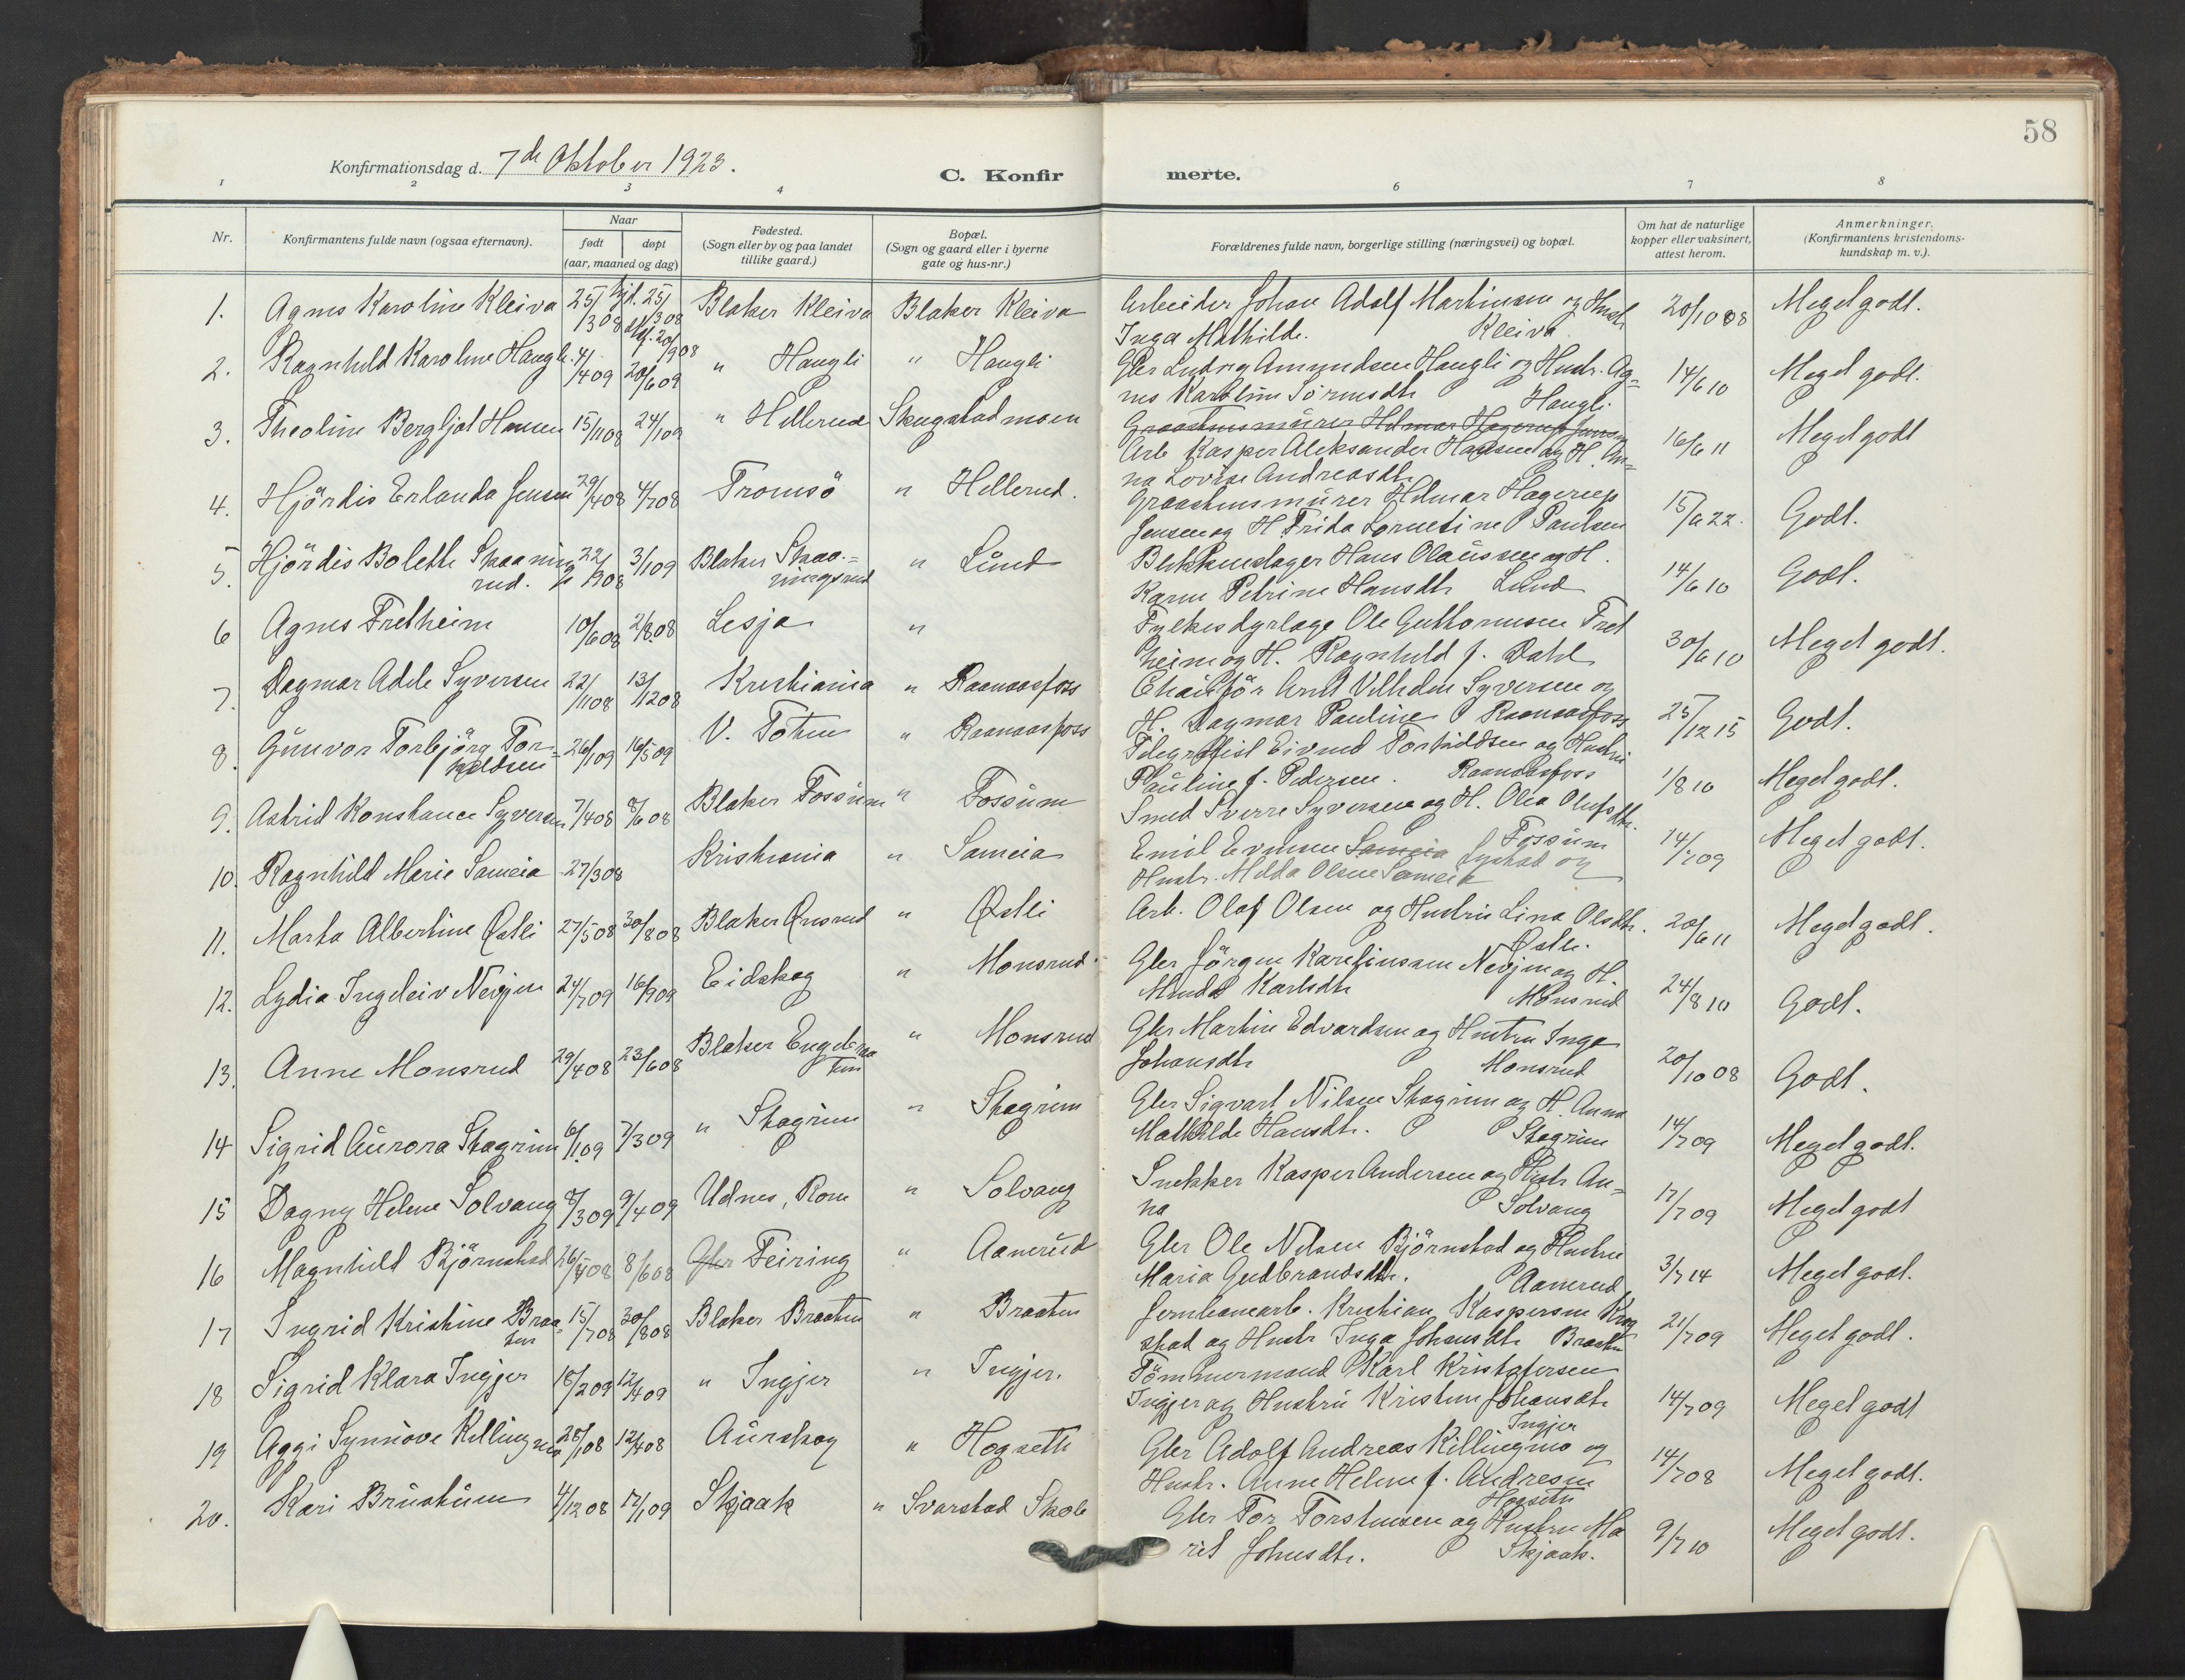 58
Konfirmationsdag d. 7de Oktober 1923.
C. Konfir merte.
1 2 3 4 6 7 8
Nr.
Konfirmantens fulde navn (ogsaa efternavn).
Naar
født døpt
(aar, maaned og dag)
Fødested.
(Sogn eller by og paa landet
tillike gaard.)
Bopæl.
(Sogn og gaard eller i byerne
gate og hus-nr.)
Forældrenes fulde navn, borgerlige stilling (næringsvei) og bopæl.
Om hat de naturlige
kopper eller vaksinert,
attest herom.
Anmerkninger.
(Konfirmantens kristendoms-
kundskap m. v.).
1. Agnes Karoline Kleiva 25/1 308 hjd. 25/1 308 20/908 Blaker Kleiva Blaker Kleiva
Arbeider Johan Adolf Martinsen og Hustr
Inga Mathilde. Kleiva 20/1008 Meget godt.
2. Ragnhild Karoline Haugli 4/409 20/609 " Haugli " Haugli
Gbr Ludvig Amundsen Haugli og Hustr. Ag=
nes Karoline Haugli 14/610 Meget godt.
3. Theoline Bergljot Hansen 15/1108 24/109 " Hellerud Skugstadmoen
Graastensmürer Hilmar Hagerup Jensen
Arb Kasper Aleksander Hansen og H. An=
na Lovise Andreasdtr 16/611 Meget godt
4. Hjördis Erlanda Jensen 29/408 4/708 Tromsö " Hellerud.
Graastensmürer Hilmar Hagerup
Jensen og H Frida Paulsen 15/622. Godt.
5. Hjördis Bolette Skaaning
rud. 22/908 3/109 Blaker Skaa-=
ningsrud " Lünd
Blikkenslager Hans Olaüssen og H.
Karen Petrine Hansdtr Lund 14/610 Godt.
6 Agnes Fretheim 10/608 2/808 Lesja "
Fylkesdyrlæge Ole Guttormsen Fret
heim og H. Ragnhild f. Dahl 30/610 Meget godt.
7. Dagmar Adele Syversen 22/1108 13/1208 Kristiania " Raanaasfoss
Chaüffør Arnt Vilhelm Syversen og
H. Dagmar Pauline Raanaasfoss 25/1215 Godt.
8. Günvor Torbjörg Tor-
kildsen 26/109 16/509 V. Toten " Raanaasfoss
Telegrafist Eivind Torkildsen og Hustrü
Paüline f. Pedersen. Raanaasfoss 1/810 Meget godt.
9. Astrid Konstance Syversen 7/408 8/608 Blaker Fossüm " Fossüm
Smed Sverre Syversen og H. Olea Olufsdtr.
Fossüm 14/709 Meget godt.
10. Ragnhild Marie Sameia 27/308 Kristiania " Sameia
Emil Evensen Sameia og
Hustr. Milda Olsen Sameia
11. Marta Albertine Østli 27/508 30/808 Blaker Ønsrud " Østli
Arb. Olaf Olsen og Hustrü Lina Olsdtr.
Østli. 20/611 Meget godt.
12. Lydia Ingeleiv Nevjen 24/709 16/909 Eidskog " Monsrud.
Gbr Jörgen Karelinssen Nevjen og H.
Minda Karlsdtr Monsrud 24/810 Godt.
13. Anne Monsrud 29/408 23/608 Blaker Engebraa
ten " Monsrud
Gbr Martin Edvardsen og Hustru Inga
Johansdtr Monsrud 20/1008 Godt.
14 Sigrid Aürora Skagrim 6/109 7/309 " Skagrim " Skagrim
Gbr Sigvart Nilsen Skagrim og H. Anna
Mathilde Hansdtr. Skagrim 14/709 Meget godt.
15 Dagny Helene Solvang 8/309 9/409 Udnes, Rom " Solvang
Snekker Kasper Andersen og Hustr An=
na Solvang 17/709 Meget godt
16 Magnhild Björnstad 26/408 8/608 Gbr Feiring " Aanerud
Gbr Ole Nilsen Björnstad og Hustru
Maria Gudbrandsdtr. Aanerud 3/714 Meget godt.
17 Ingrid Kristine Braa=
ten 15/708 30/808 Blaker Braaten " Braaten
Jernbanearb. Kristian Kaspersen Krog
stad og Hustr Inga Johansdtr Braaten 21/709 Meget godt.
18 Sigrid Klara Ingjer 18/209 12/409 " Ingjer " Ingjer.
Tömmermand Karl Kristofersen
Ingjer og Hustrü Kristine Johansdtr
Ingjer 14/709 Meget godt
19 Aggi Synnöve Killingmo 28/108 12/408 Aürskog " Hogseth
Gbr Adolf Andreas Killingmo og
Hustr. Anne Helene f. Andresen
Hogseth 14/708 Meget godt.
20. Kari Brüsküm 4/1208 17/109 Skjaak " Svarstad Skole
Gbr Tor Torstensen og Hustru Ma
rit Johnsdtr. Skjaak. 9/710 Meget godt.